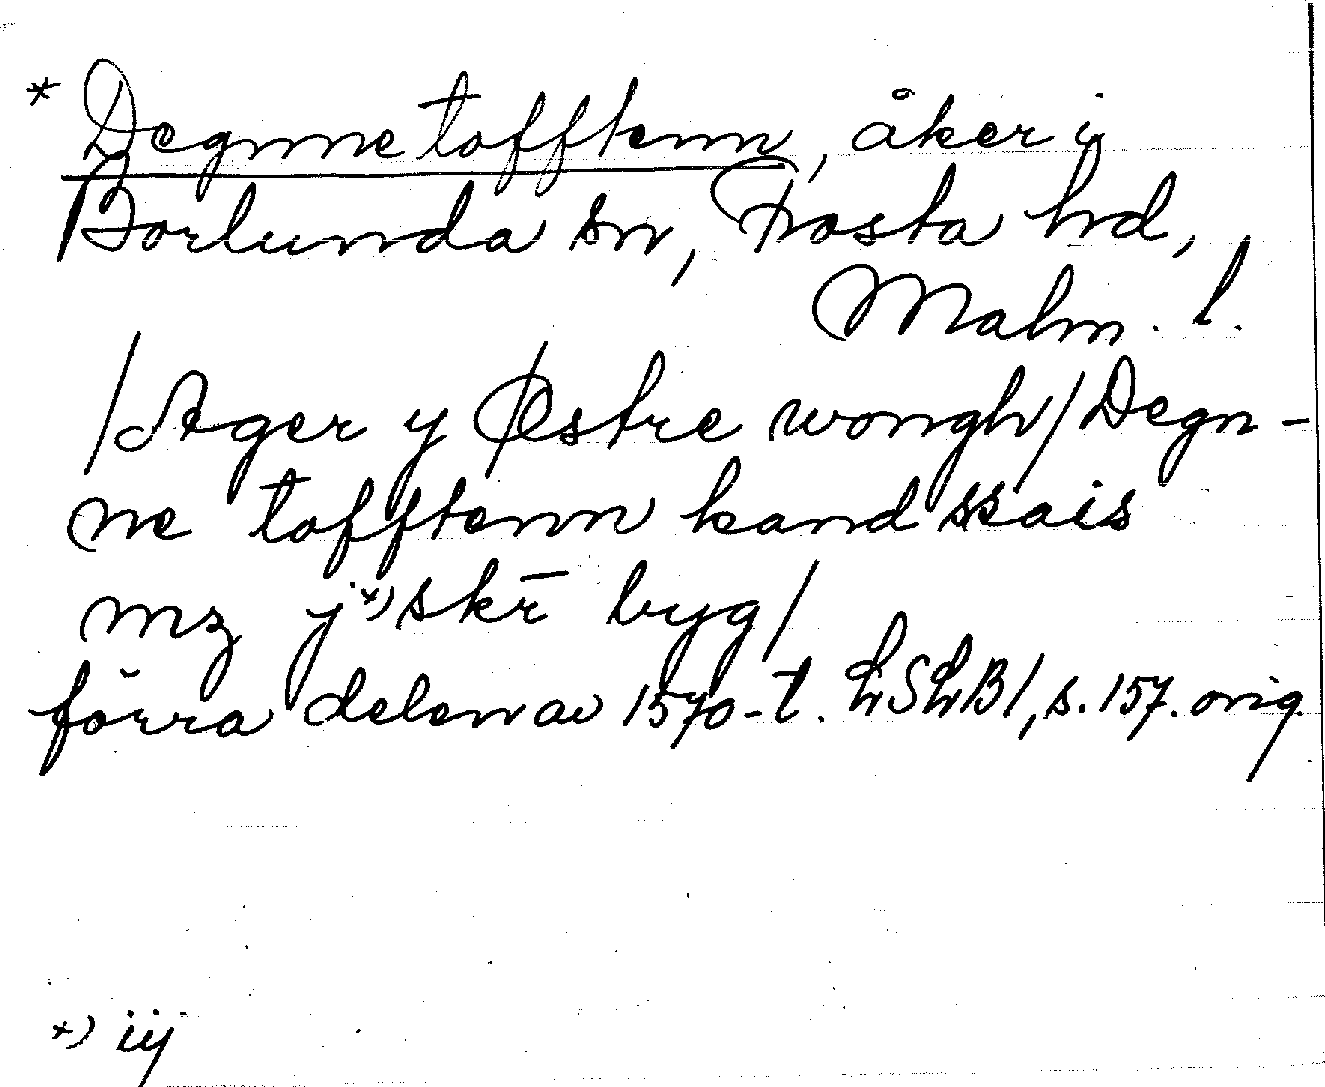 * Degnne tofftenn, åker i
Borlunda sn, Frosta hd,
Malm. l.
/Ager y Østre wongh/Degn-
ne tofftenn kand ssais
mz j *) skr̄ byg/
förra delen av 1570-t. LSLB1, s. 157. orig.
*) iij